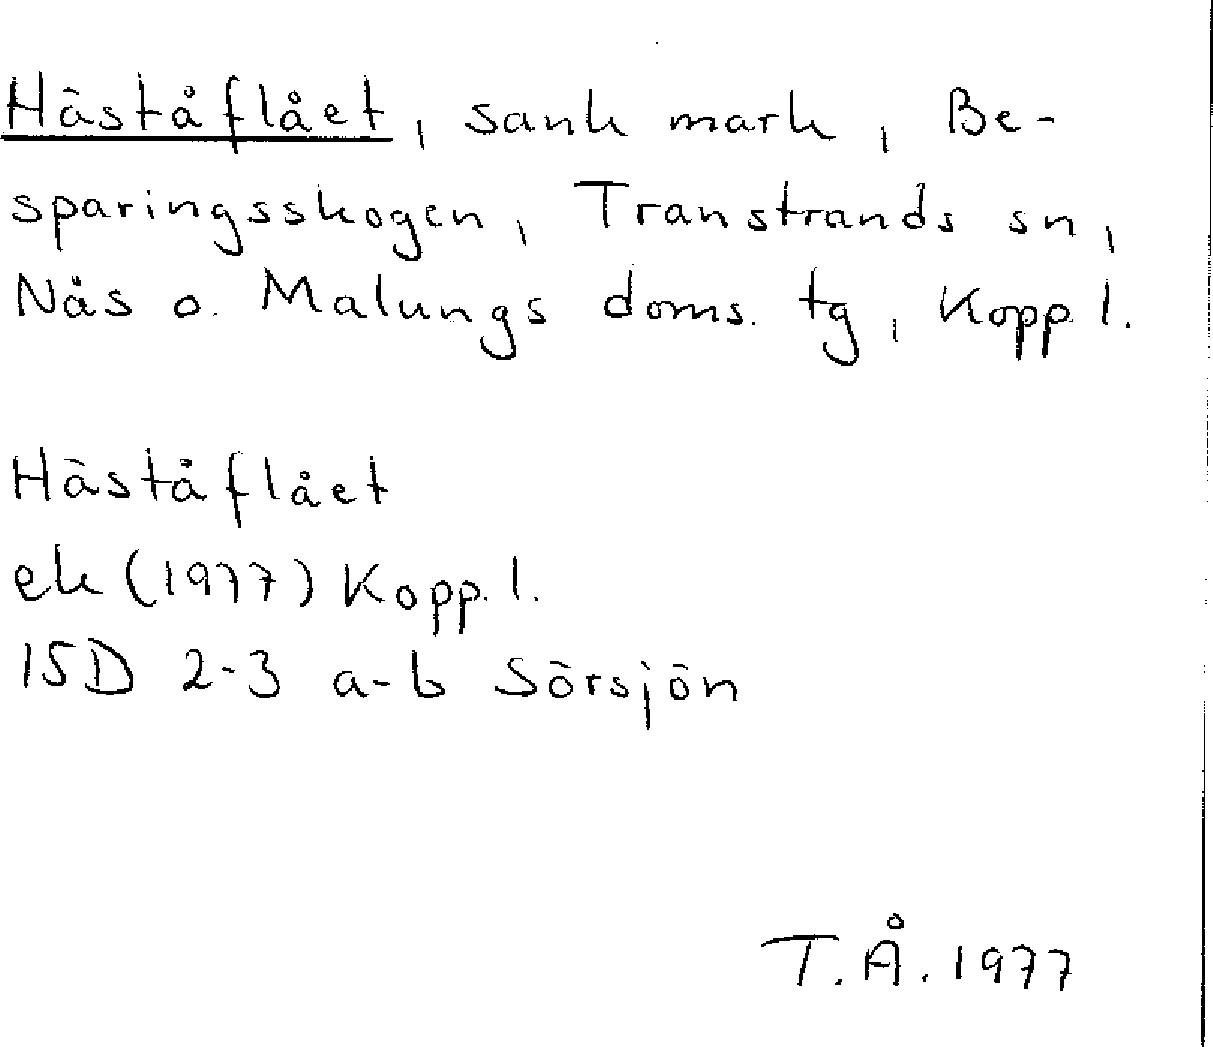 Häståflået, sank mark, Be-
sparingsskogen, Transtrands sn,
Nås o. Malungs doms. tg, Kopp. l.
Häståflået
ek (1977) Kopp. l.
15D 2-3 a-b Sörsjön
T.Å. 1977